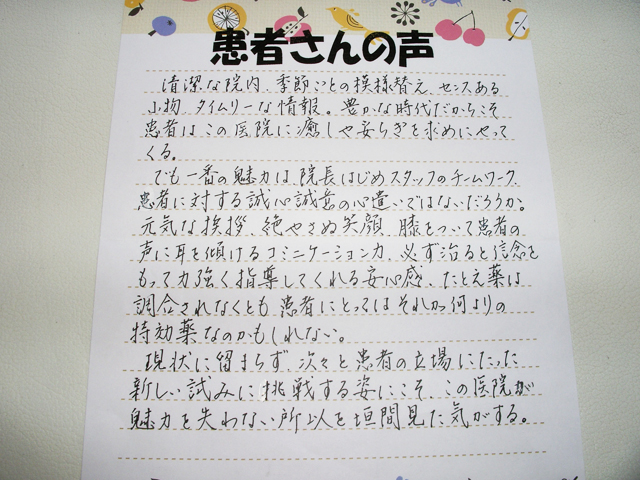 患者さんの声
清潔な院内、季節ごとの模様替え、センスある
小物、タイムリーな情報。豊かな時代だからこそ
患者はこの医院に癒しや安らぎを求めにやって
くる。
でも一番の魅力は、院長はじめスタッフのチームワーク、
患者に対する誠心誠意の心遣いではないだろうか。
元気な挨拶、絶やさぬ笑顔、膝をついて患者の
声に耳を傾けるコミニケーション力、必ず治ると信念を
もって力強く指導してくれる安心感、たとえ薬は
調合されなくとも患者にとってはそれが何よりの
特効薬なのかもしれない。
現状に留まらず、次々と患者の立場にたった
新しい試みに挑戦する姿にこそ、この医院が
魅力を失わない所以を垣間見た気がする。